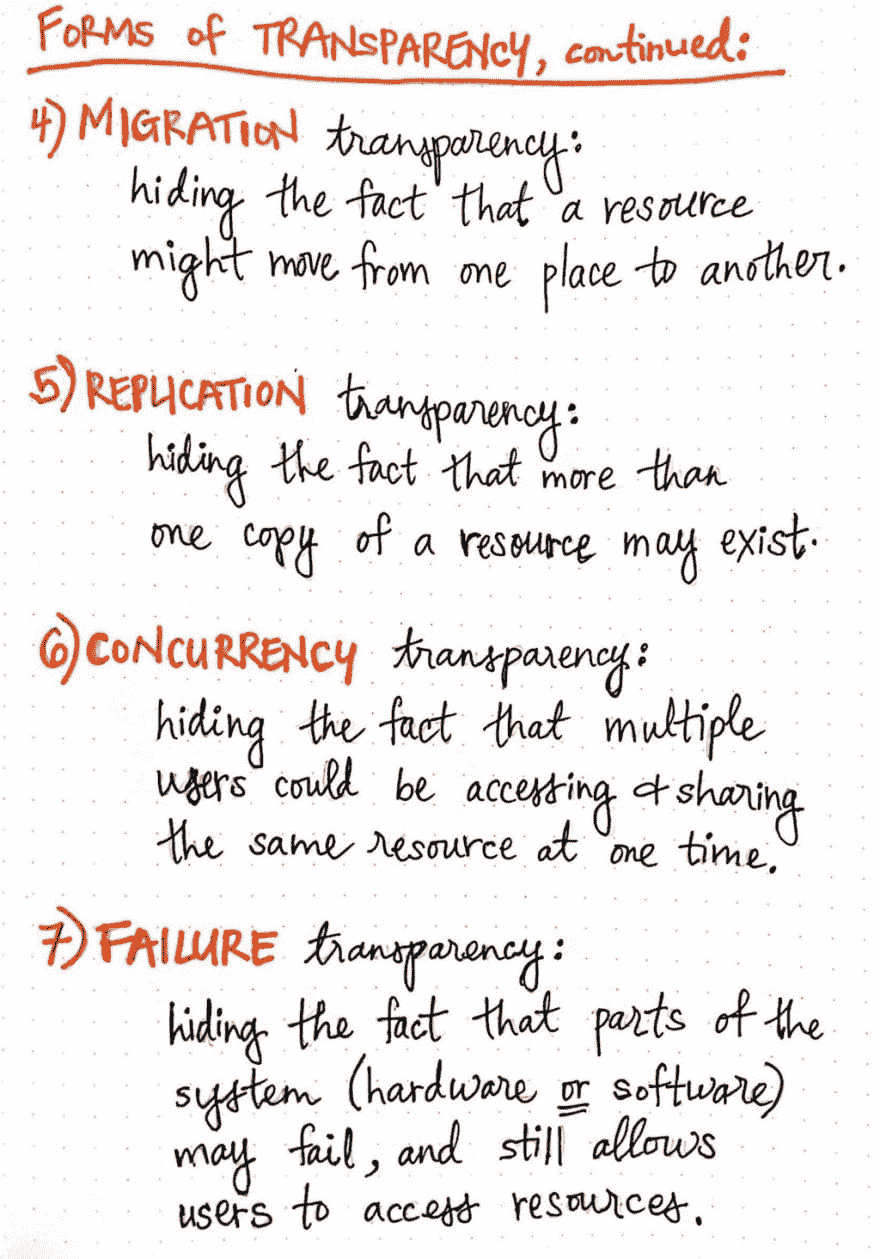 FORMS of TRANSPARENCY, continued:
4) MIGRATION transparency:
hiding the fact that a resource
might move from one place to another.
5) REPLICATION transparency:
hiding the fact that more than
one copy of a resource may exist.
6) CONCURRENCY transparency:
hiding the fact that multiple
users could be accessing & sharing
the same resource at one time.
7) FAILURE transparency:
hiding the fact that parts of the
system (hardware or software)
may fail, and still allows
users to access resources.